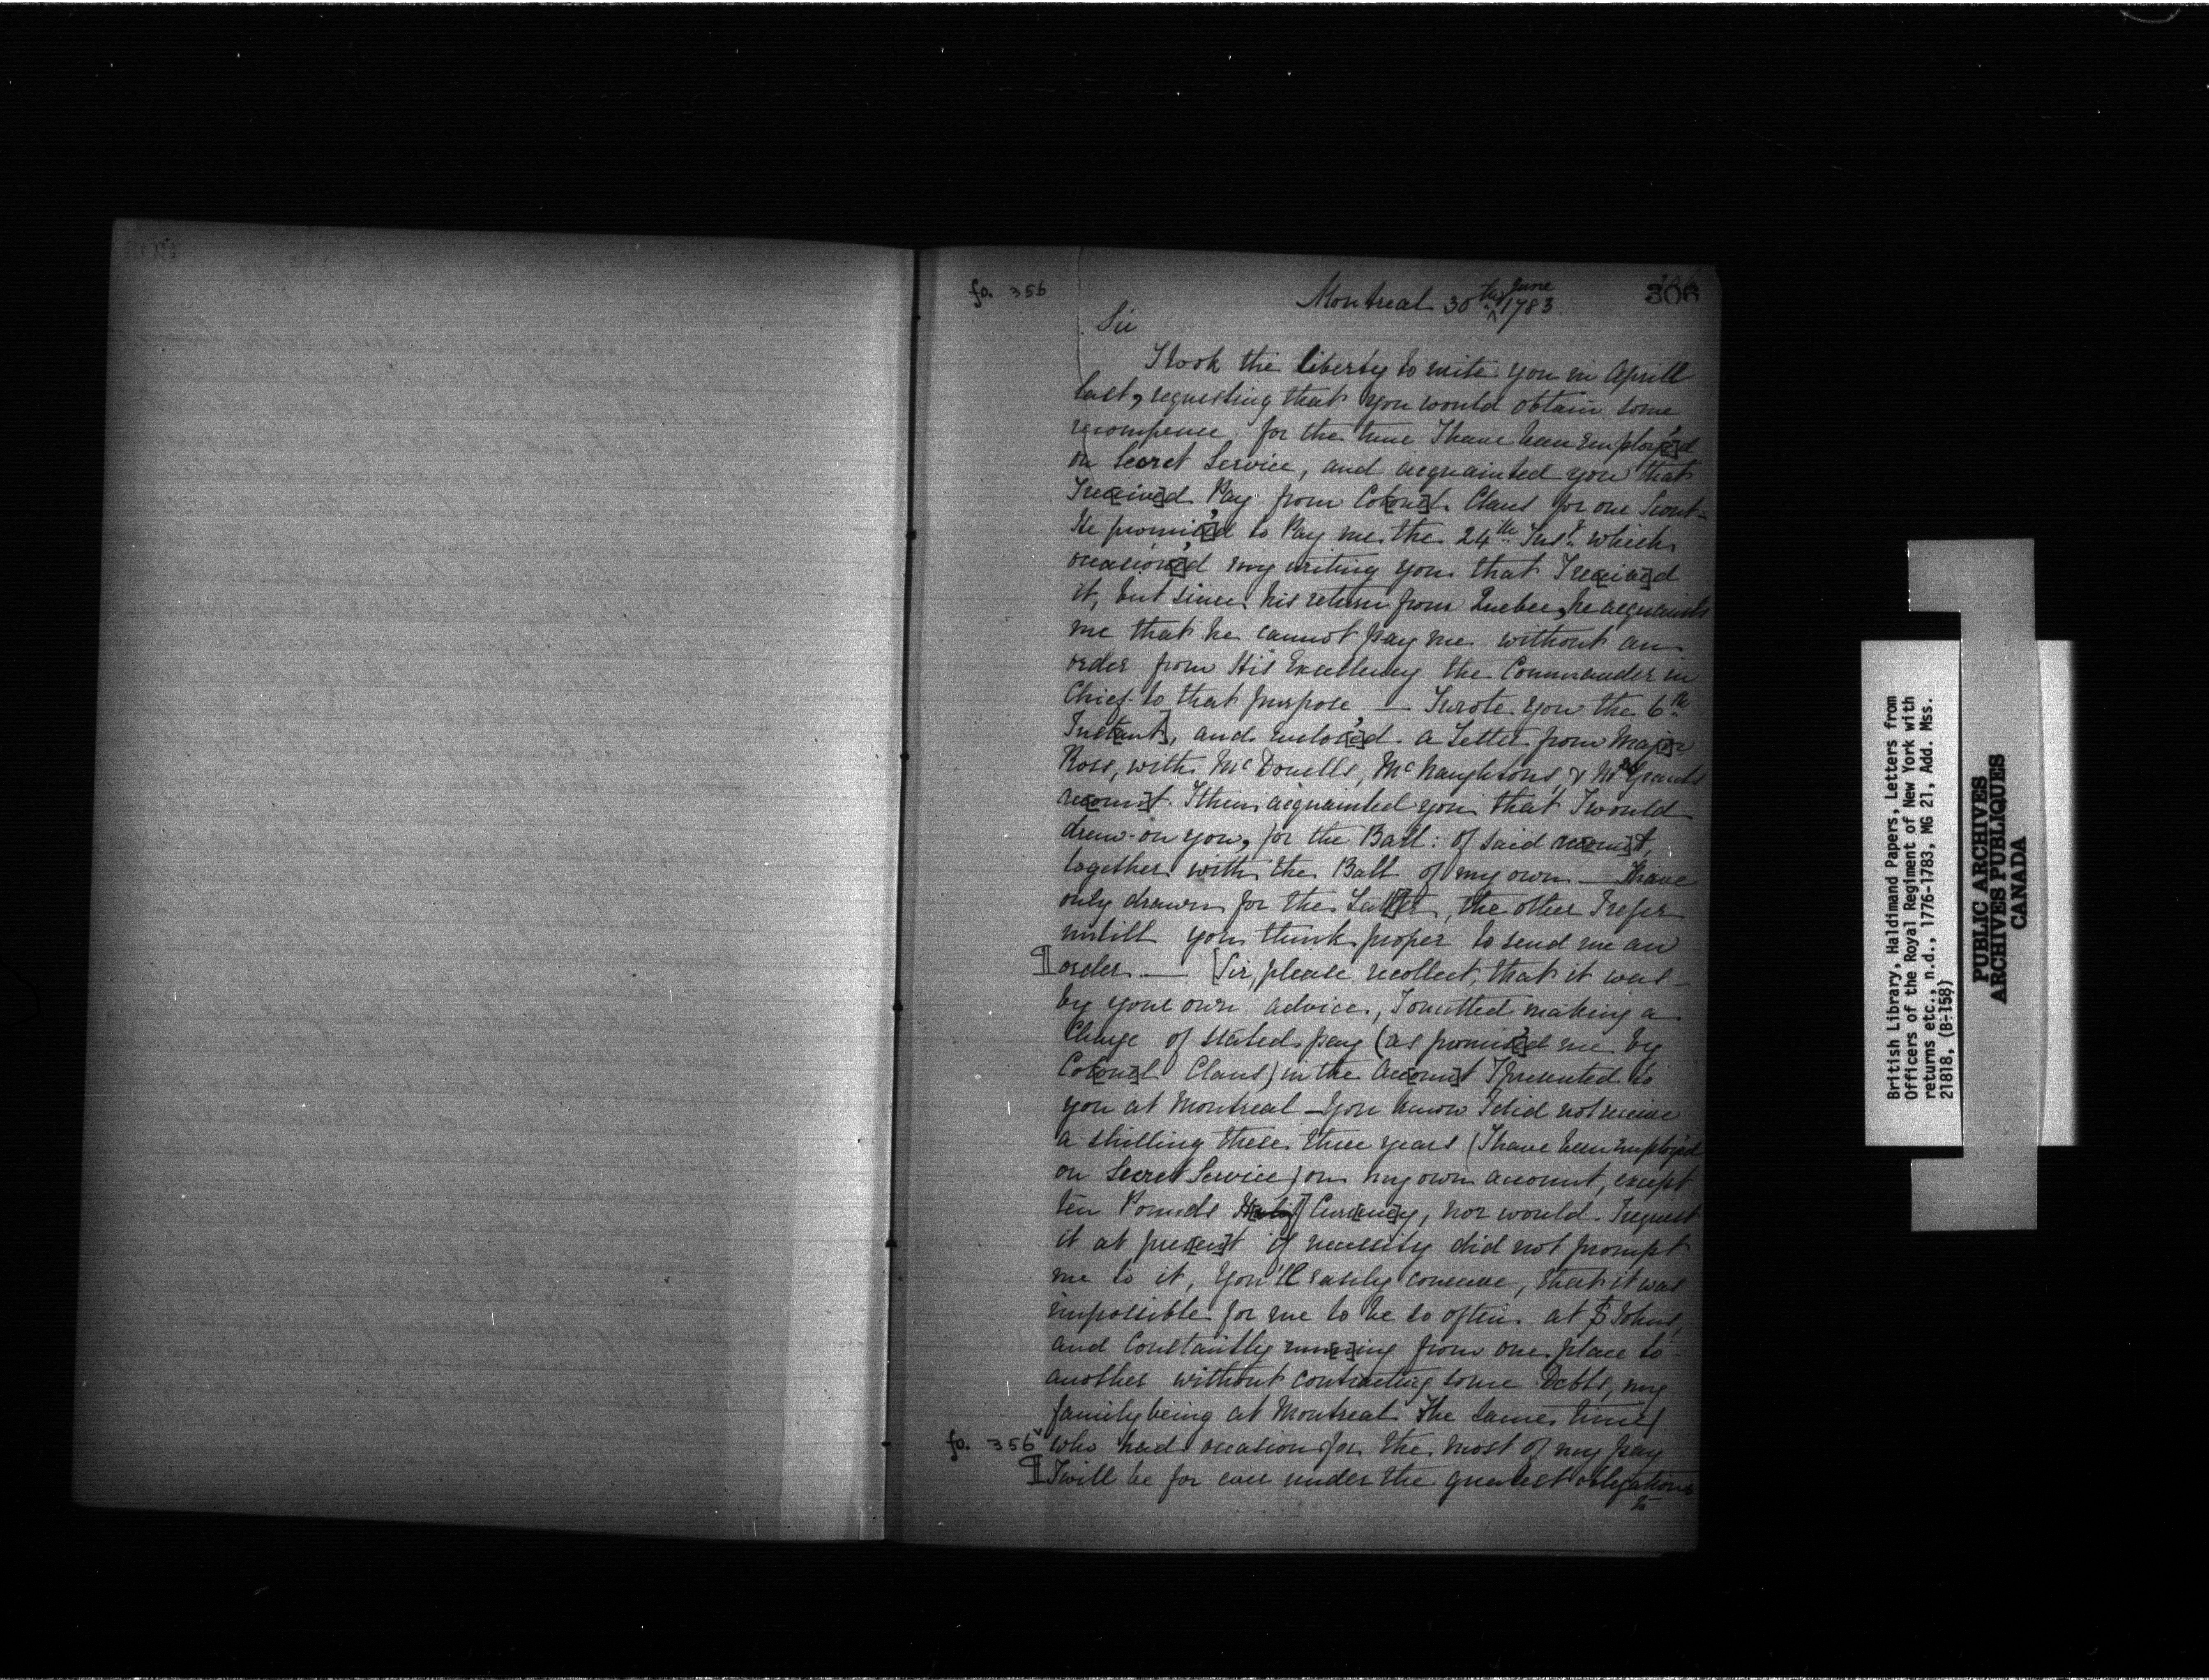 fo. 356
Montreal 30th June 1783.
306
Sir
I took the liberty to write you in Aprill
last, requesting that you would obtain some
recompence for the time I have been employ[e]'d
on Secret Service, and acquainted you that
I rec[eive]d Pay from Co[lone]l Claus for one Scout -
He promis[e]'d to Pay me the 24th Inst. which
occasion[e]'d my writing you that I rec[eive]d
it, but since his return from Quebec, he acquaints
me that he cannot pay me without an
order from His Excellency the Commander in
Chief to that purpose — I wrote you the 6th
Inst[ant], and enclos[e]'d a Letter from Maj[o]r
Ross, with McDonells, McNaughtons, & Grants
acc[oun]t. I then acquainted you that I would
draw on you, for the Ball: of said acc[oun]t,
together with the Ball of my own — I have
only drawn for the Latter, the other I refer
untill you think proper to send me an
¶ order — [Sir, please recollect, that it was
by your own advice, I omitted making a
Charge of stated pay (as promis[e]'d me by
Co[lone]l Claus) in the Acc[oun]t I presented to
you at Montreal - You know I did not receive
a shilling these three years (I have been employ'd
on Secret Service) on my own account, except
ten Pounds Curr[enc]y, nor would I request
it at pres[en]t if necessity did not prompt
me to it, You'll easily conceive, that it was
impossible for me to be so often at St Johns,
and Constantly run[n]ing from one place to
another without contracting some Debts, my
family being at Montreal the same time)
fo. 356v who had occasion for the most of my pay
¶ I will be for ever under the greatest obligations
to
British Library, Haldimand Papers, Letters from
Officers of the Royal Regiment of New York with
returns etc., n.d., 1776-1783, MG 21, Add. Mss.
21818, (B-158)
PUBLIC ARCHIVES
ARCHIVES PUBLIQUES
CANADA